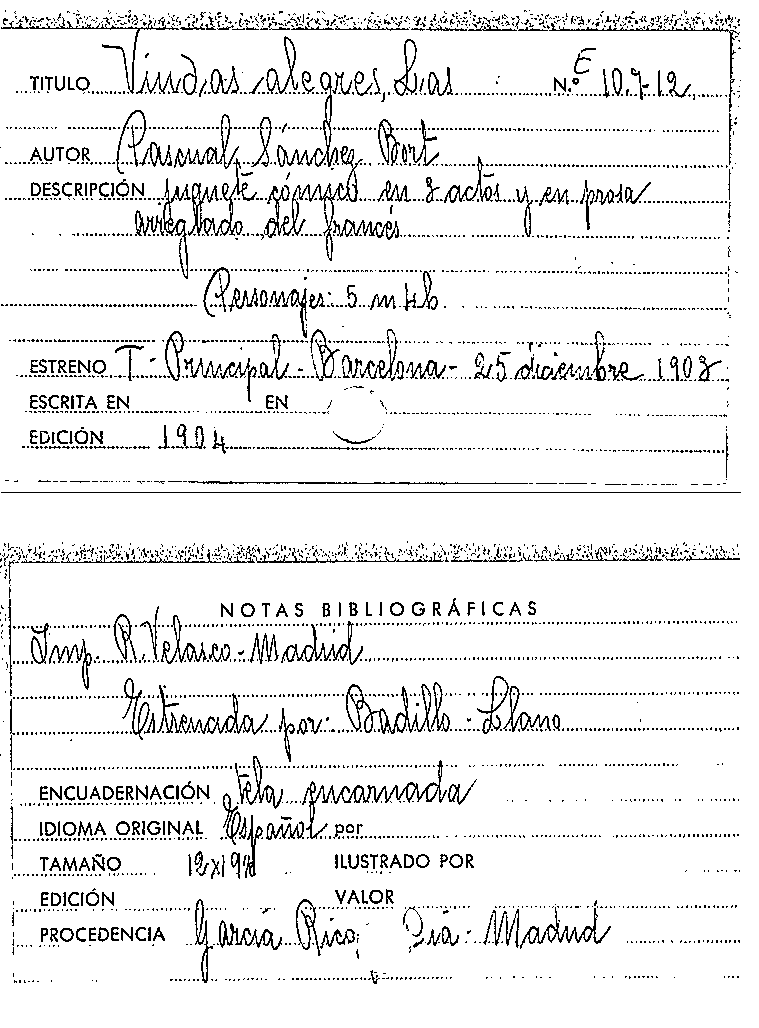 TITULO Viudas alegres, Las N.º E 10.7-12
AUTOR Pascual Sánchez Bort
DESCRIPCIÓN juguete cómico en 3 actos y en prosa
arreglado del francés
Personajes: 5 m 4 h.
ESTRENO T. Principal - Barcelona - 25 diciembre 1903
ESCRITA EN EN
EDICIÓN 1904
NOTAS BIBLIOGRÁFICAS
Imp. R. Velasco - Madrid
Estrenada por: Badillo - Llano
ENCUADERNACIÓN tela encarnada
IDIOMA ORIGINAL Español por
TAMAÑO 12x19½ ILUSTRADO POR
EDICIÓN VALOR
PROCEDENCIA García Rico, Madrid